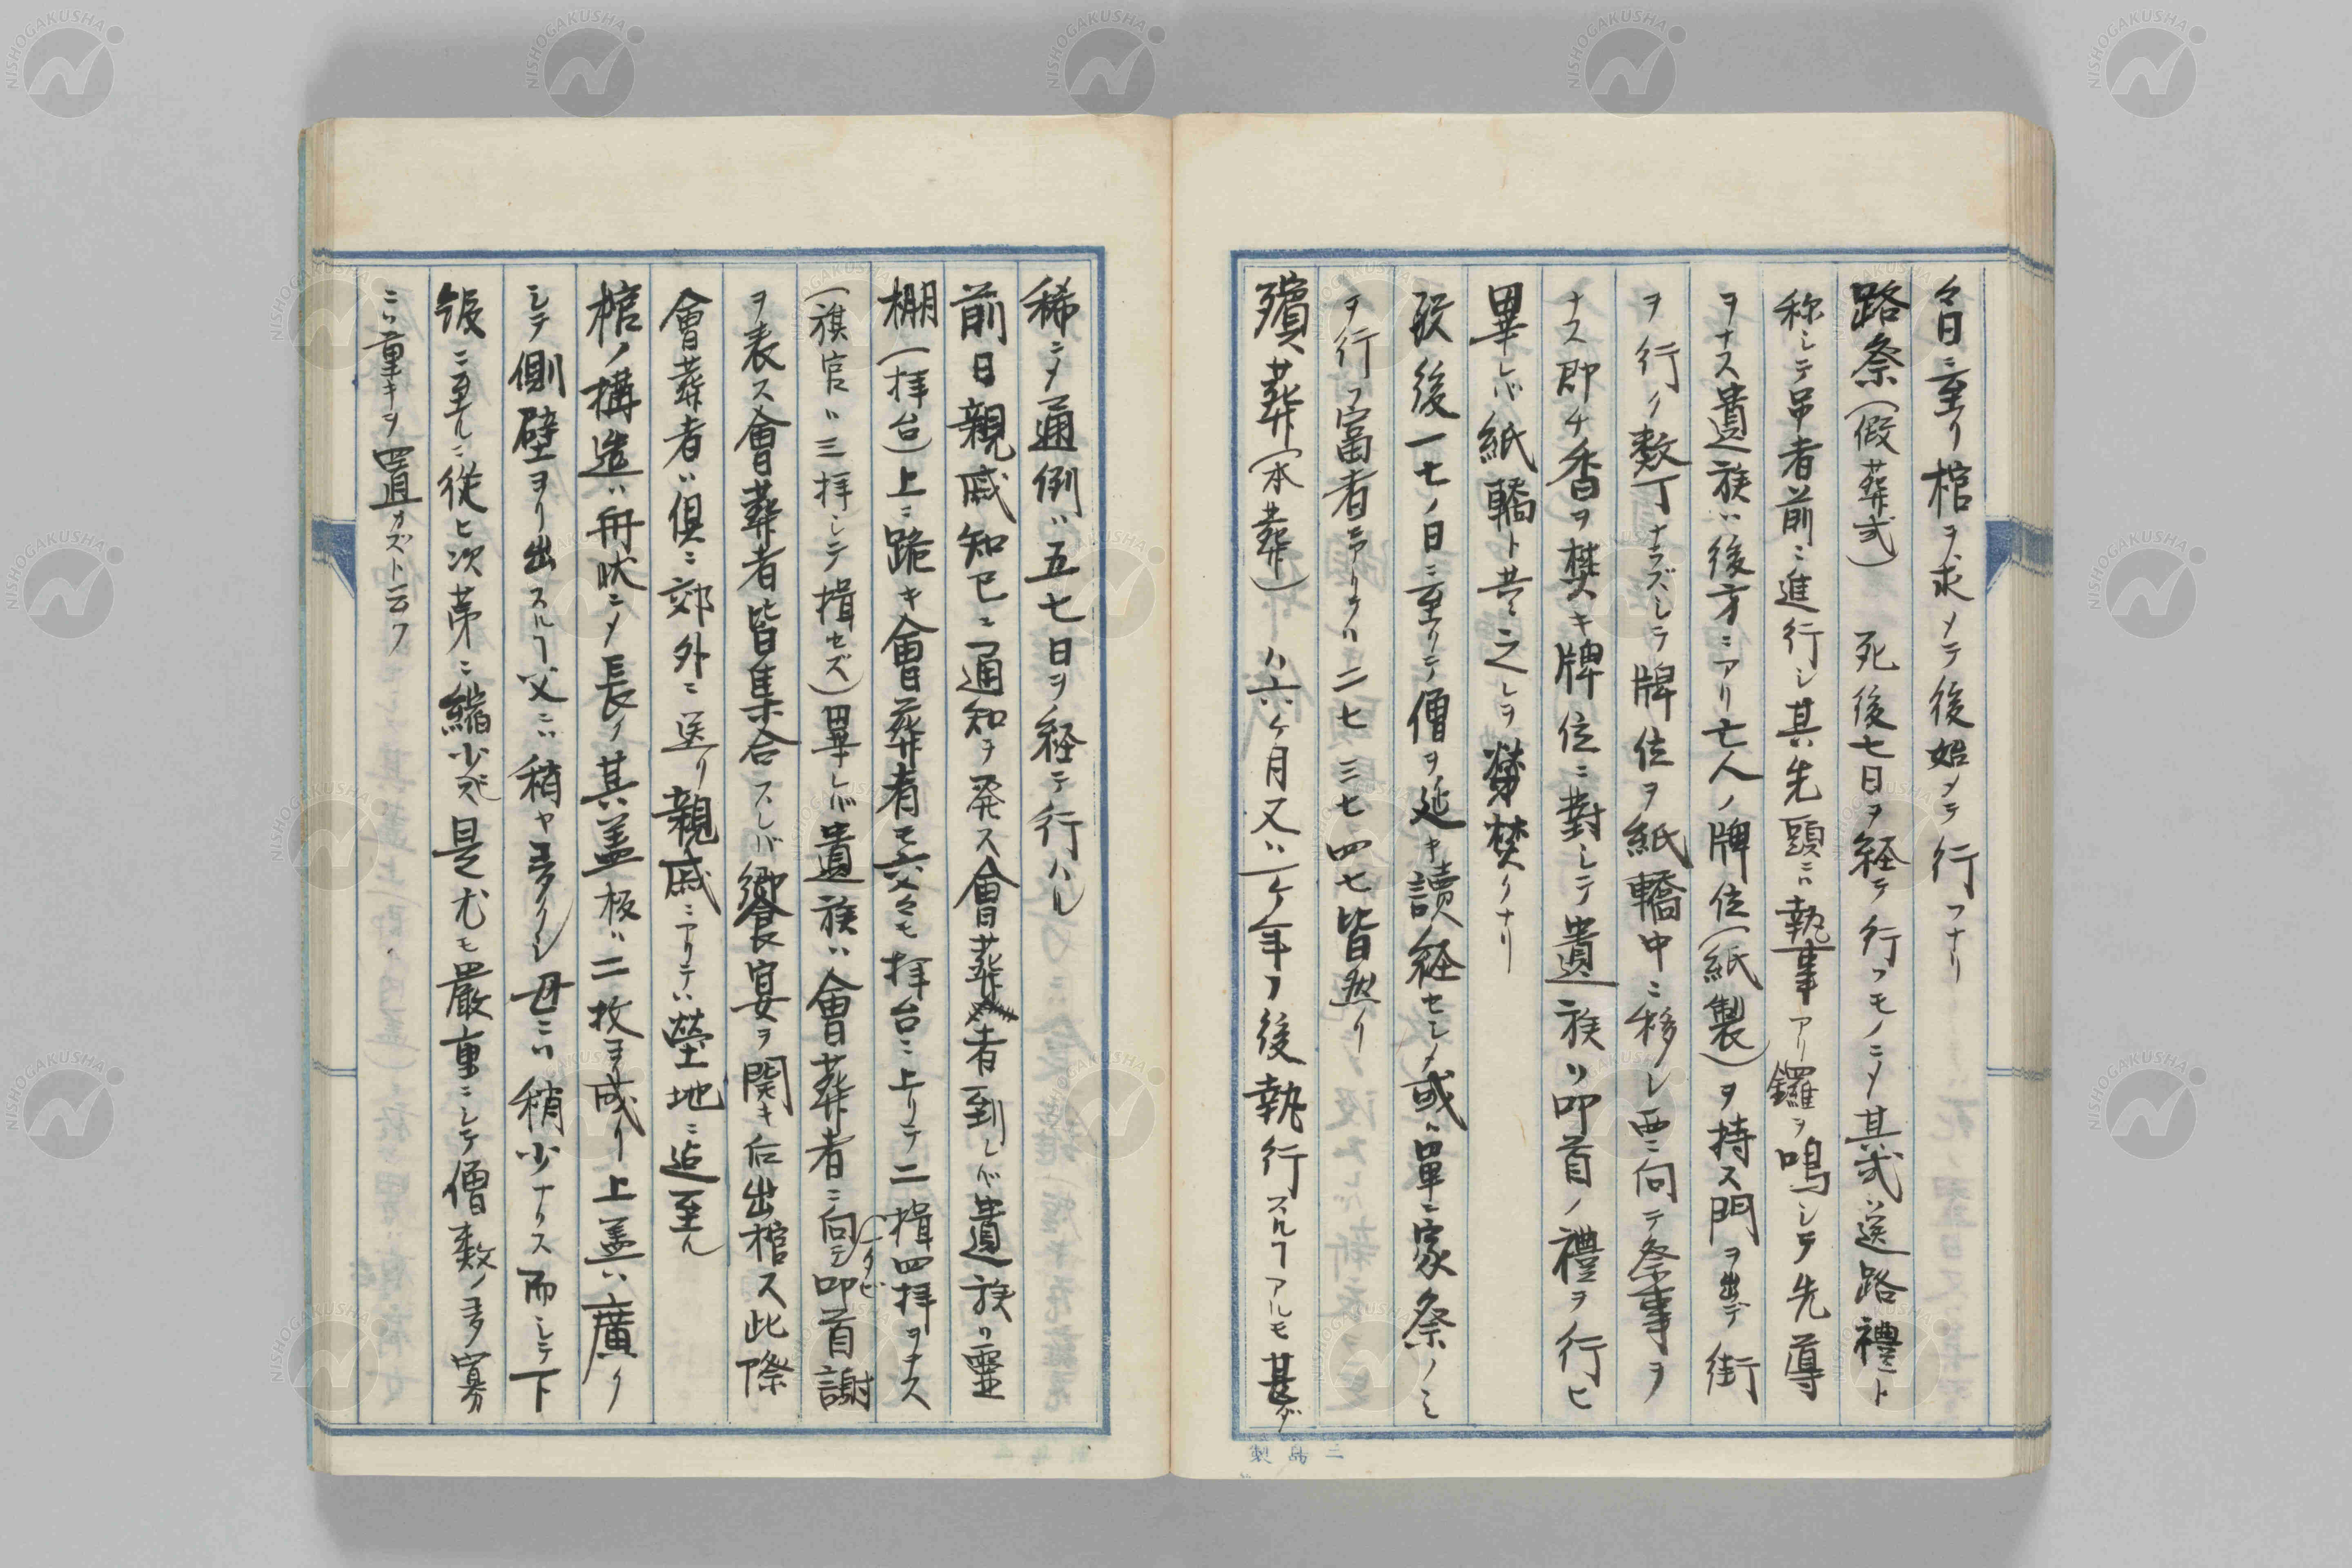 々日ニ至リ棺ヲ求メテ後始メテ行フナリ
路祭(假葬式) 死後七日ヲ経テ行フモノニメ其式ハ送路禮ト
称シテ吊者前ニ進行シ其先頭ニハ執事アリ鑼ヲ鳴シテ先導
ヲナス遺族ハ後方ニアリ亡人ノ牌位(紙製)ヲ持ス門ヲ出デ街
ヲ行ク数丁ナラズシテ牌位ヲ紙轎中ニ移シ西ニ向テ祭事ヲ
ナス即チ香ヲ焚キ牌位ニ對シテ遺族ハ叩首ノ禮ヲ行ヒ
畢レバ紙轎ト共ニ之レヲ焚クナリ
殁後一七ノ日ニ至リテ僧ヲ延キ讀経セシメ或ハ單ニ家祭ノミ
ヲ行フ富者ニアリテハ二七三七四七皆然リ
殯葬(本葬) ハ六ケ月又ハ一ケ年ノ後執行スルヿアルモ甚ダ
稀ニメ通例ハ五七日ヲ経テ行ハル
前日親戚知己ニ通知ヲ発ス會葬者到レバ遺族ハ靈
棚(拝台)上ニ跪キ會葬者モ亦拝台ニ上リテ二揖四拝ヲナス
(旗官ハ三拝シテ揖セズ)畢レバ遺族ハ會葬者ニ向テ一タビ叩首謝
ヲ表ス會葬者皆集合スレバ饗宴ヲ開キ后出棺ス此際
會葬者ハ俱ニ郊外ニ送リ親戚ニアリテハ塋地ニ迄至ル
棺ノ構造ハ舟状ニメ長ク其蓋板ハ二枚ヨリ成リ上蓋ハ廣ク
シテ側壁ヨリ出スルヿ父ニハ稍ヤ多クシ母ニハ稍少ナクス而シテ下
級ニ至ルニ從ヒ次第ニ縮少ス是尤モ嚴重ニシテ僧数ノ多寡
ニハ重キヲ置カズト云フ
二島製
NISHOGAKUSHA